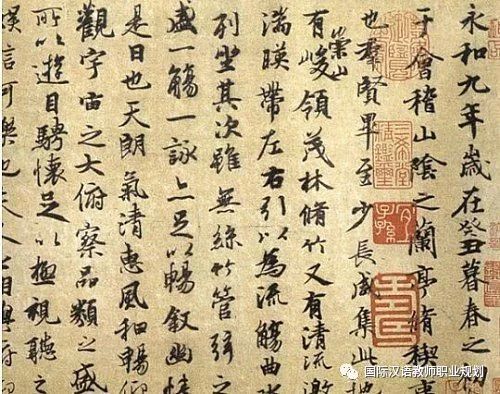 永和九年歲在癸丑暮春之初
于會稽山陰之蘭亭脩稧事
也羣賢畢至少長咸集此地
有崇山峻領茂林脩竹又有清流激
湍暎帶左右引以為流觴曲水
列坐其次雖無絲竹管弦之
盛一觴一詠亦足以暢敘幽情
是日也天朗氣清惠風和暢仰
觀宇宙之大俯察品類之盛
所以遊目騁懷足以極視聽之
娛信可樂也夫人之相與俯仰
国际汉语教师职业规划